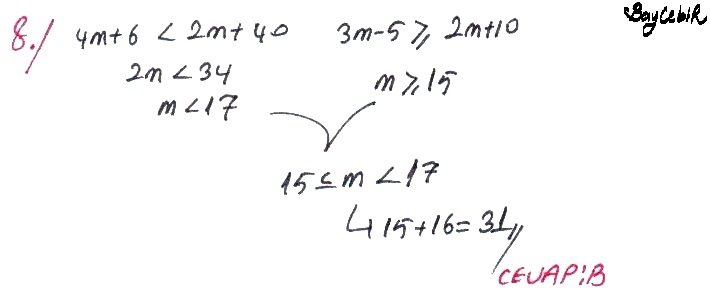 BayCebiR
8./ 4m+6 < 2m+40 3m-5 ≥ 2m+10
2m < 34 m ≥ 15
m < 17
15 ≤ m < 17
↳ 15+16=31//
CEVAP:B